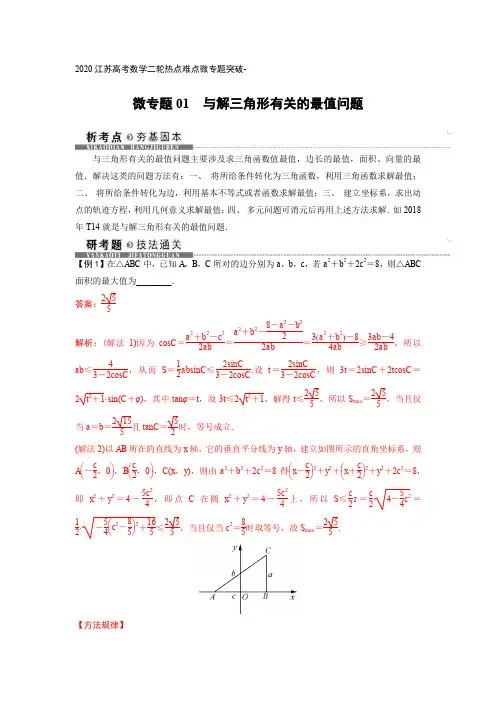 2020江苏高考数学二轮热点难点微专题突破-
微专题01 与解三角形有关的最值问题
析考点 夯基固本
XIKAODIAN HANGJIGUBEN
与三角形有关的最值问题主要涉及求三角函数值最值，边长的最值，面积、向量的最
值．解决这类的问题方法有：一、 将所给条件转化为三角函数，利用三角函数求解最值；
二、 将所给条件转化为边，利用基本不等式或者函数求解最值；三、 建立坐标系，求出动
点的轨迹方程，利用几何意义求解最值；四、 多元问题可消元后再用上述方法求解．如2018
年T14就是与解三角形有关的最值问题．
研考题 技法通关
YANKAOTI JIFATONGGUAN
【例1】在△ABC中，已知A，B，C所对的边分别为a，b，c，若a²＋b²＋2c²＝8，则△ABC
面积的最大值为________．
答案：2√5/5
解析：(解法1)因为cosC＝(a²＋b²－c²)/2ab＝(a²＋b²－(8－a²－b²)/2)/2ab＝(3(a²＋b²)－8)/4ab≥(3ab－4)/2ab，所以
ab≤4/(3－2cosC)，从而S＝1/2absinC≤2sinC/(3－2cosC).设t＝2sinC/(3－2cosC)，则3t＝2sinC＋2tcosC＝
2√(t²＋1)·sin(C＋φ)，其中tanφ＝t，故3t≤2√(t²＋1)，解得t≤2√5/5，所以Smax＝2√5/5，当且仅
当a＝b＝2√15/5且tanC＝√5/2时，等号成立．
(解法2)以AB所在的直线为x轴，它的垂直平分线为y轴，建立如图所示的直角坐标系，则
A(－c/2，0)，B(c/2，0)，C(x，y)，则由a²＋b²＋2c²＝8得(x－c/2)²＋y²＋(x＋c/2)²＋y²＋2c²＝8，
即x²＋y²＝4－5c²/4，即点C在圆x²＋y²＝4－5c²/4上，所以S≤c/2r＝c/2·√(4－5/4c²)＝
1/2·√(－5/4(c²－8/5)²＋16/5)≤2√5/5，当且仅当c²＝8/5时取等号，故Smax＝2√5/5.
y
C
b
a
A c O B x
【方法规律】